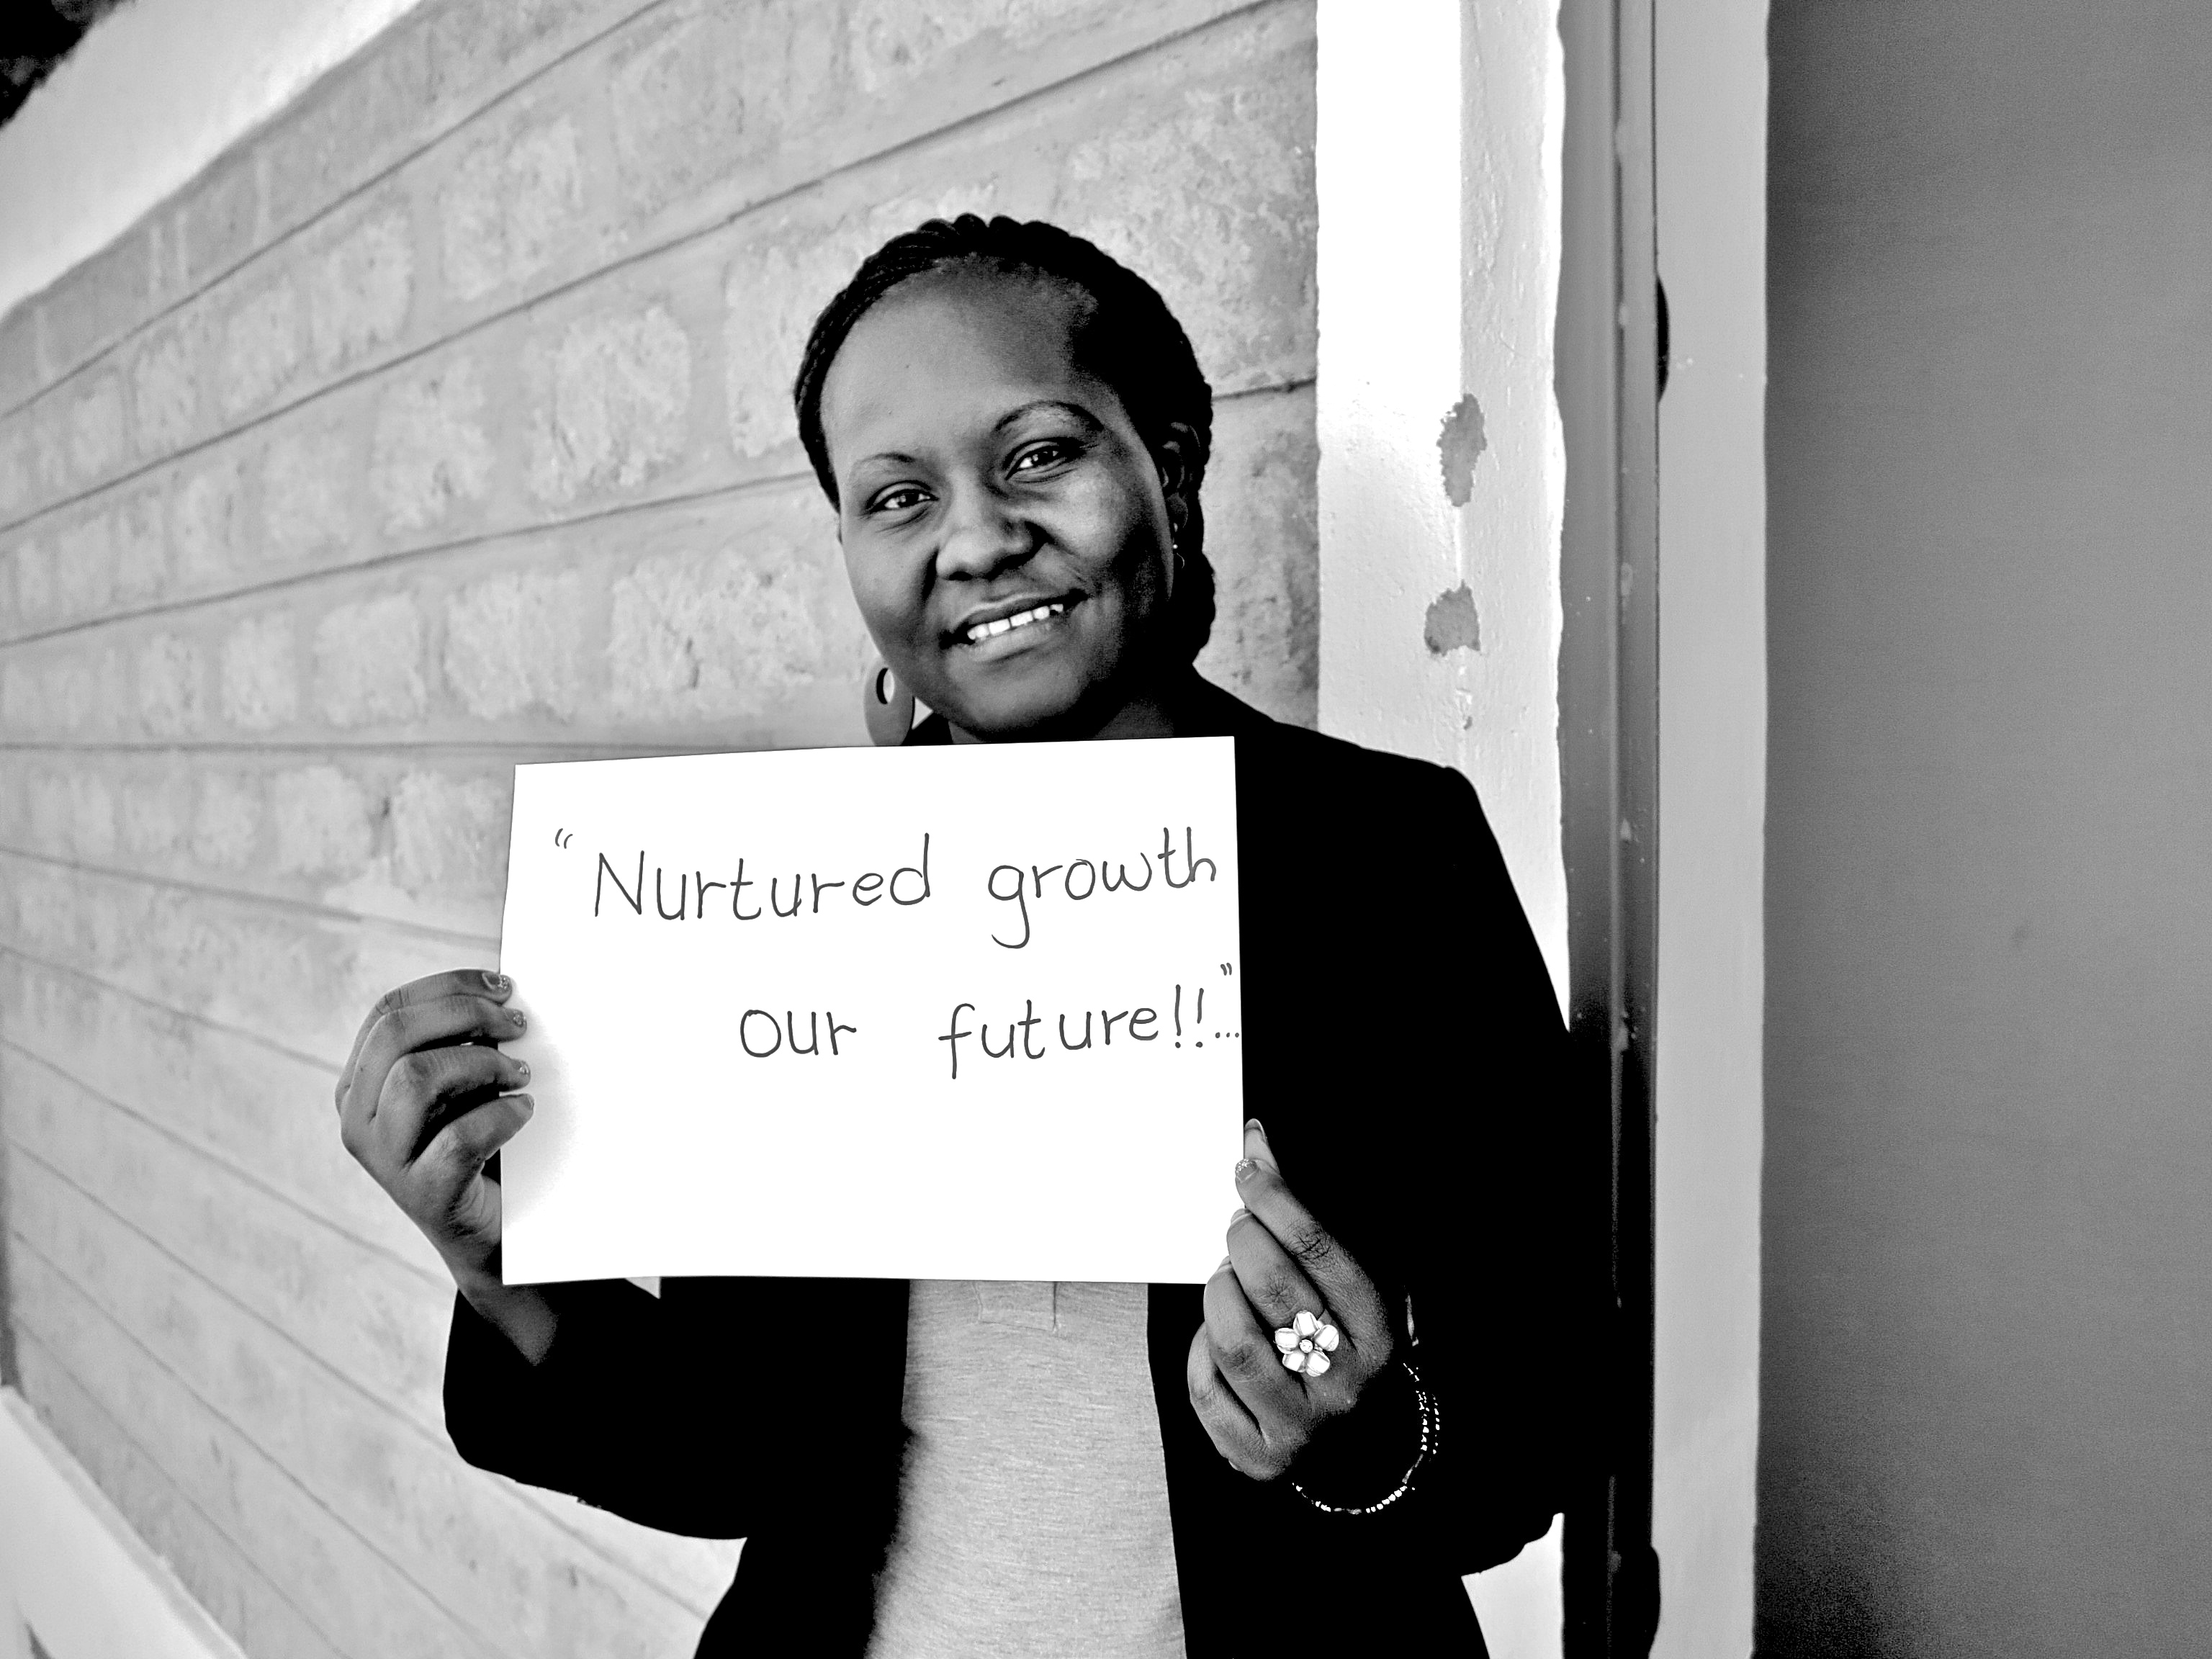 "Nurtured growth
our future!!..."